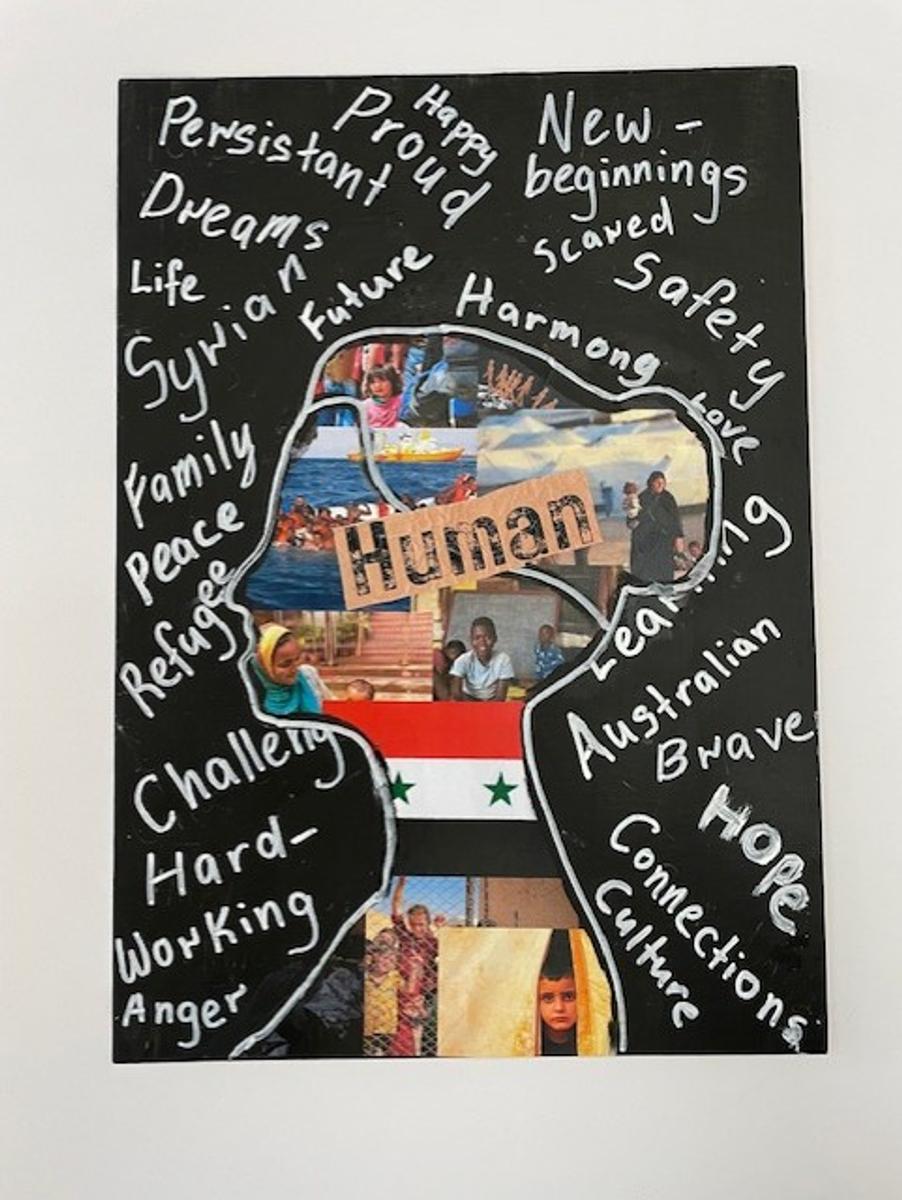 Persistant
Proud
Happy
New-
beginnings
Dreams
Scared
Life
Future
Safety
Syrian
Harmony
Love
Family
Human
Peace
Learning
Refugee
Australian
Challeng
Brave
Hard-
Working
HOPE
Connections
Culture
Anger